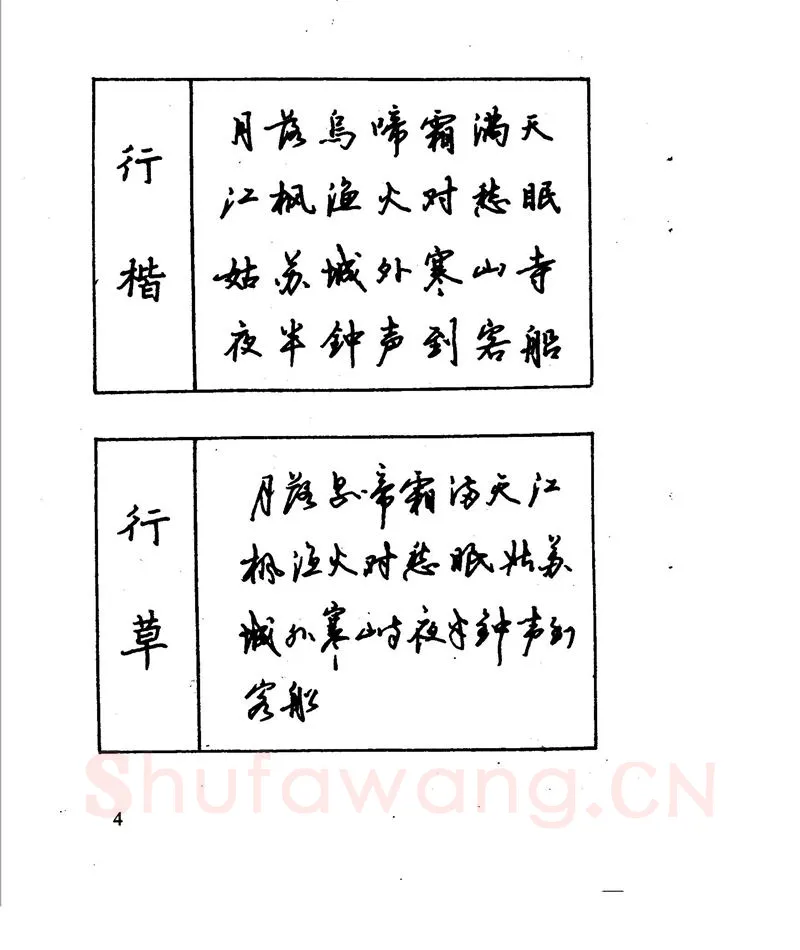 行楷
月落乌啼霜满天
江枫渔火对愁眠
姑苏城外寒山寺
夜半钟声到客船
行草
月落乌啼霜满天江
枫渔火对愁眠姑苏
城外寒山寺夜半钟声到
客船
Shufawang.CN
4